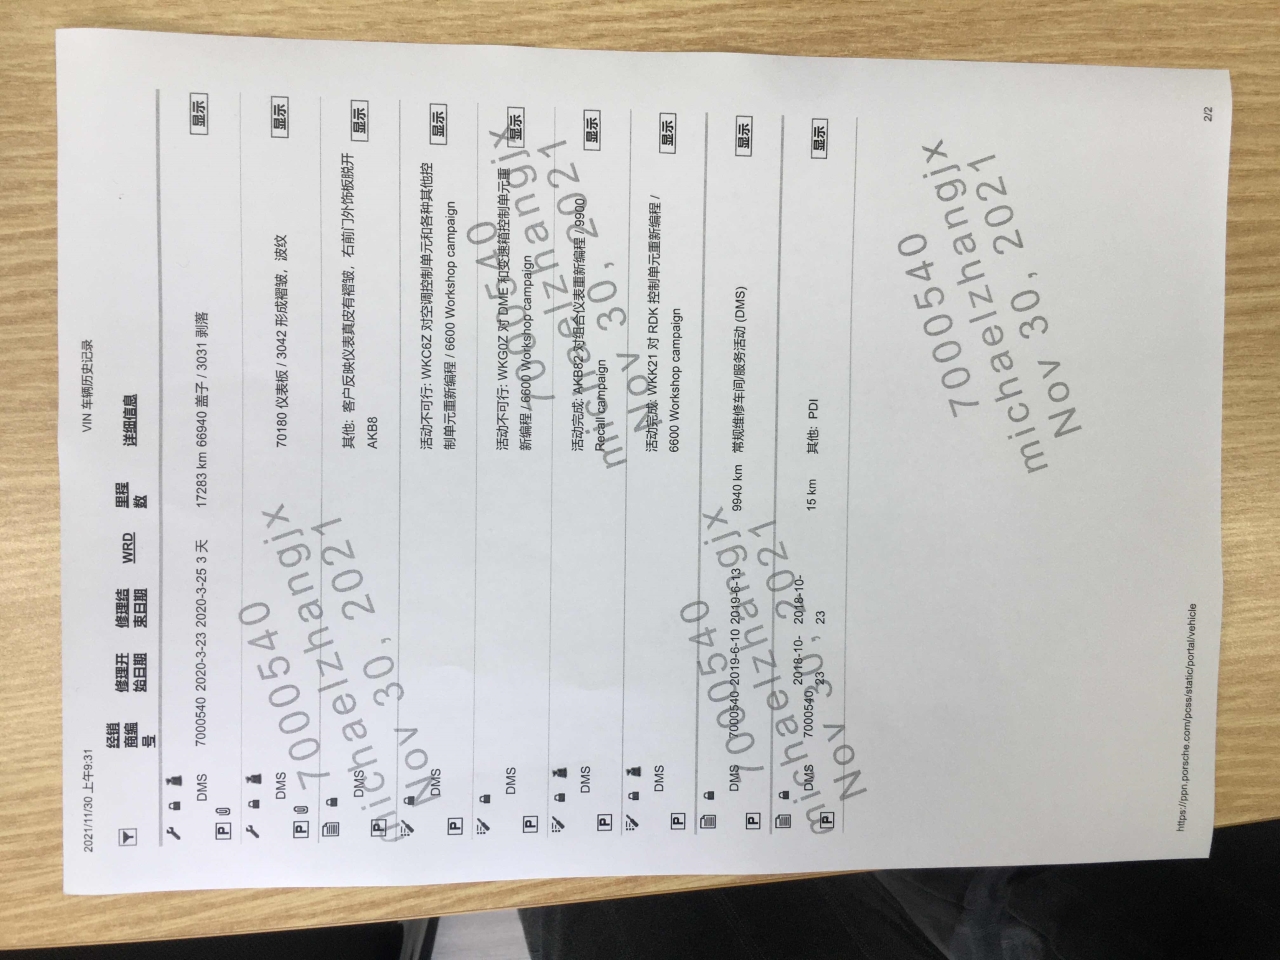 2021/11/30 上午9:31
VIN 车辆历史记录
经销商编号 修理开始日期 修理结束日期 WRD 里程数 详细信息
DMS 7000540 2020-3-23 2020-3-25 3 天 17283 km 66940 盖子 / 3031 剥落 显示
P
DMS 70180 仪表板 / 3042 形成褶皱，波纹 显示
P
DMS 其他: 客户反映仪表真皮有褶皱，右前门外饰板脱开 显示
P AKB8
DMS 活动不可行: WKC6Z 对空调控制单元和各种其他控 显示
P 制单元重新编程 / 6600 Workshop campaign
DMS 活动不可行: WKG0Z 对 DME 和变速箱控制单元重 显示
P 新编程 / 6600 Workshop campaign
DMS 活动完成: AKB82 对组合仪表重新编程 / 9900 显示
P Recall campaign
DMS 活动完成: WKK21 对 RDK 控制单元重新编程 / 显示
P 6600 Workshop campaign
DMS 7000540 2019-6-10 2019-6-13 9940 km 常规维修车间/服务活动 (DMS) 显示
P
DMS 7000540 2018-10-23 2018-10-23 15 km 其他: PDI 显示
P
7000540
michaelzhangjx
Nov 30, 2021
7000540
michaelzhangjx
Nov 30, 2021
7000540
michaelzhangjx
Nov 30, 2021
7000540
michaelzhangjx
Nov 30, 2021
https://ppn.porsche.com/pcss/static/portal/vehicle
2/2